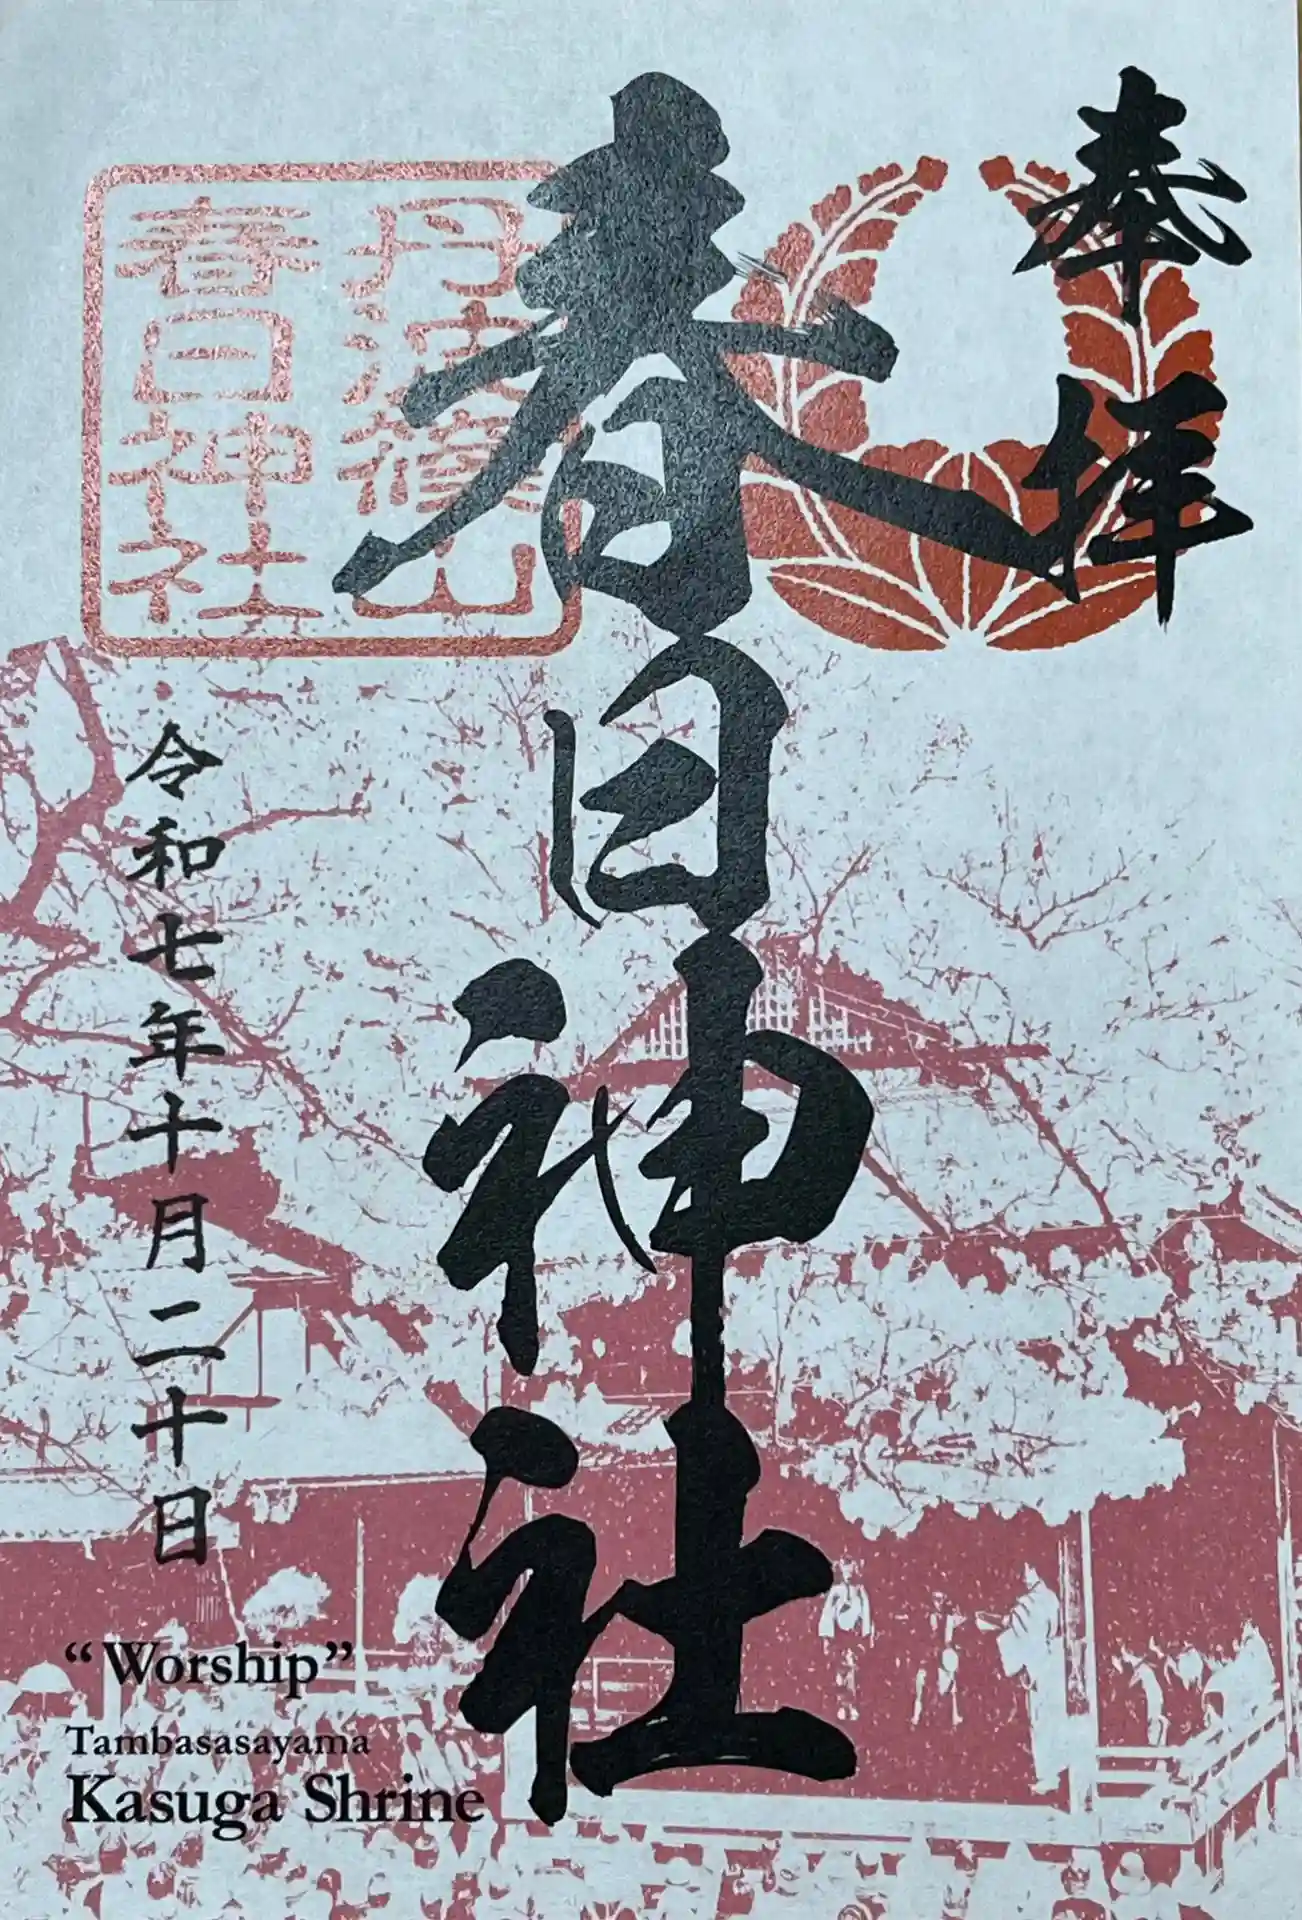 奉拝
春日神社
丹波篠山
春日神社
令和七年十月二十日
“Worship”
Tambasasayama
Kasuga Shrine